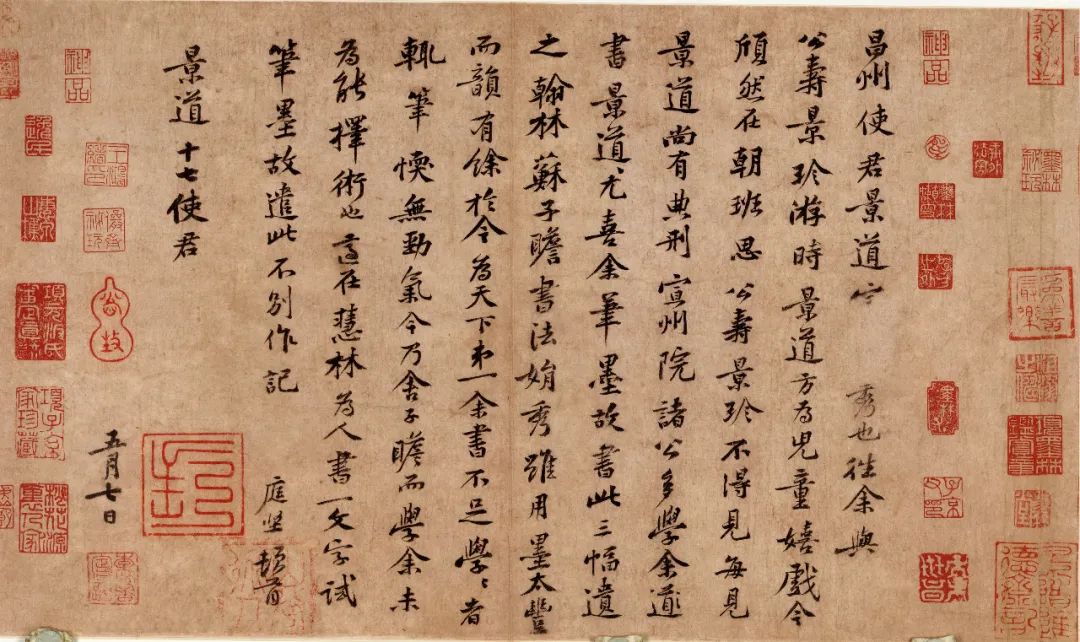 昌州使君景道秀也往余與
公壽景珍游時景道方為兒童嬉戲今
頎然在朝班思公壽景珍不得見每見
景道尚有典刑宣州院諸公多學余
書景道尤喜余筆墨故書此三幅遺
之翰林蘇子瞻書法娟秀雖用墨太豐
而韻有餘於今為天下第一余書不足學學者
輒筆愞無勁氣今乃舍子瞻而學余未
為能擇術也適在慧林為人書一文字試
筆墨故遣此不別作記
庭堅頓首
景道十七使君
五月七日
神品
子京
神品
項元汴氏審定真蹟
項子京家珍藏
桃花源裏人家